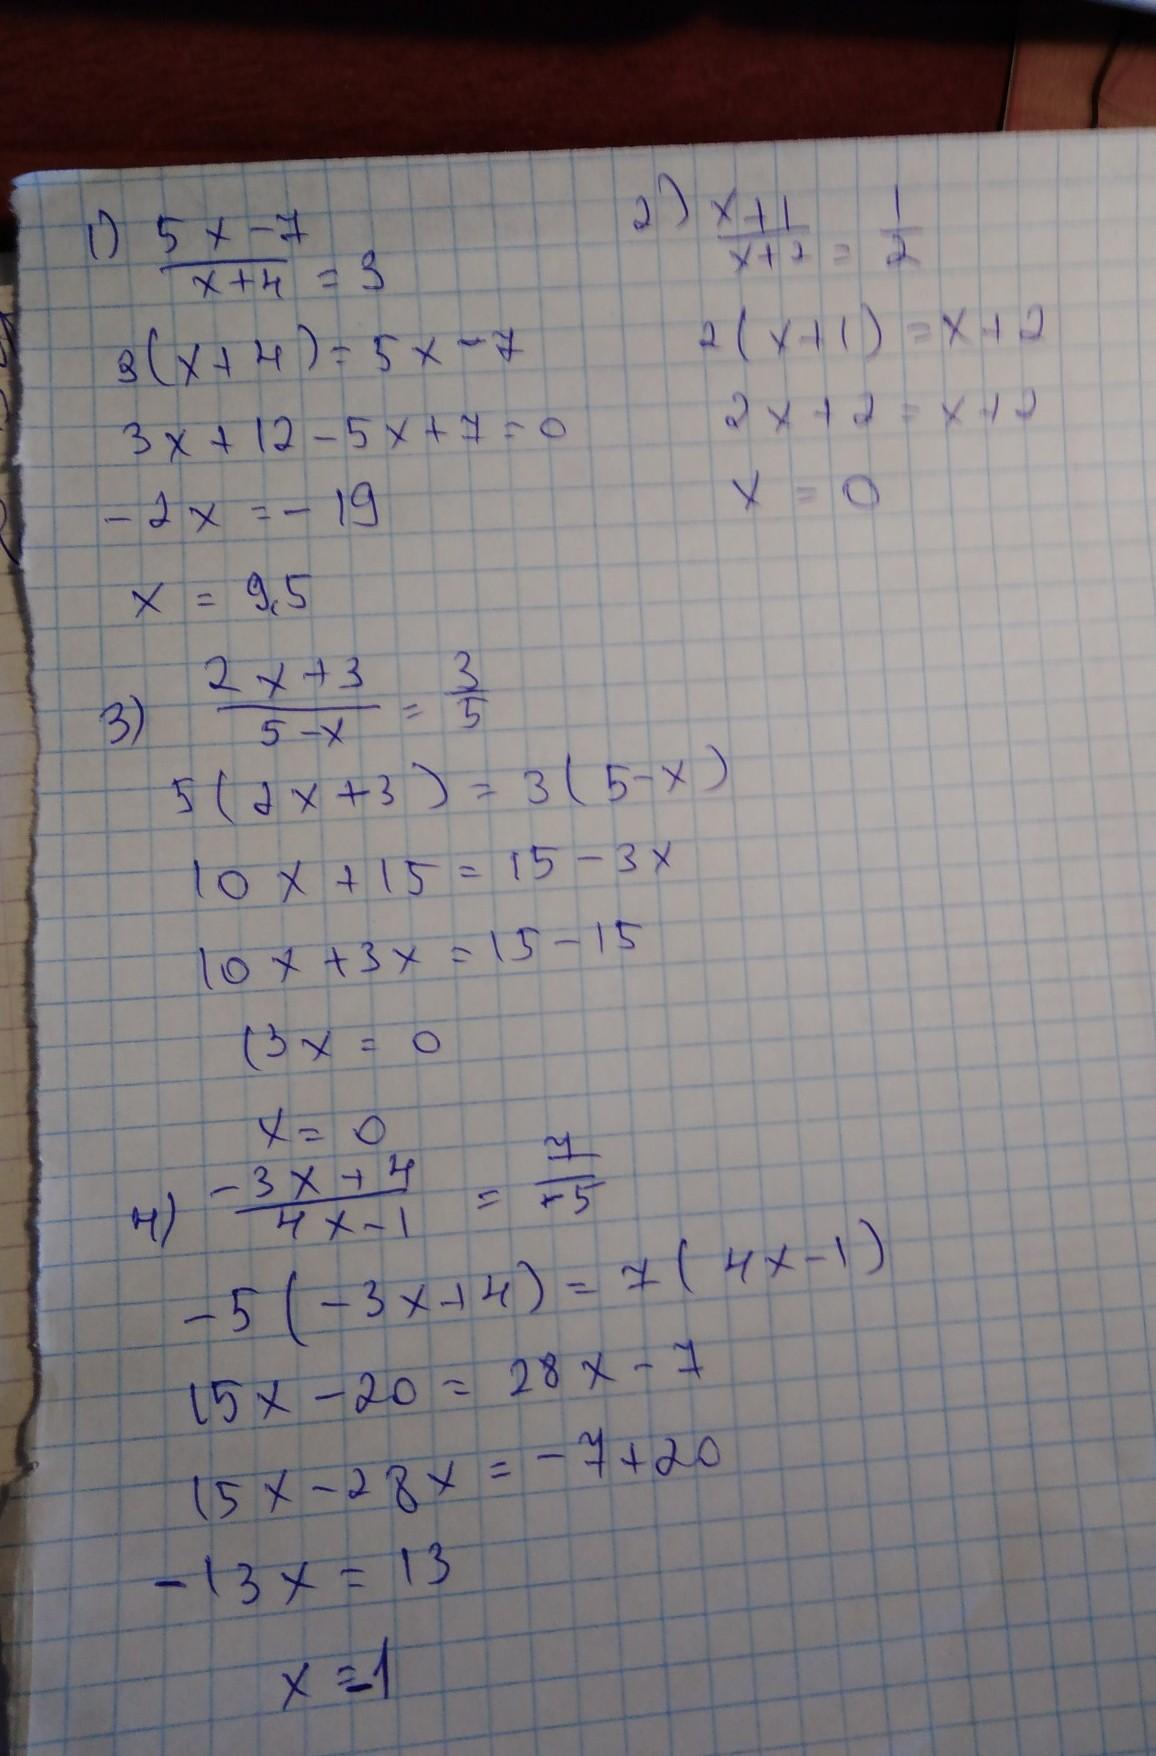 1) (5x-7)/(x+4) = 3
3(x+4) = 5x-7
3x+12-5x+7=0
-2x = -19
x = 9,5
2) (x+1)/(x+2) = 1/2
2(x+1) = x+2
2x+2 = x+2
x = 0
3) (2x+3)/(5-x) = 3/5
5(2x+3) = 3(5-x)
10x+15 = 15-3x
10x+3x = 15-15
13x = 0
x = 0
4) (-3x+4)/(4x-1) = 7/-5
-5(-3x+4) = 7(4x-1)
15x-20 = 28x-7
15x-28x = -7+20
-13x = 13
x = -1